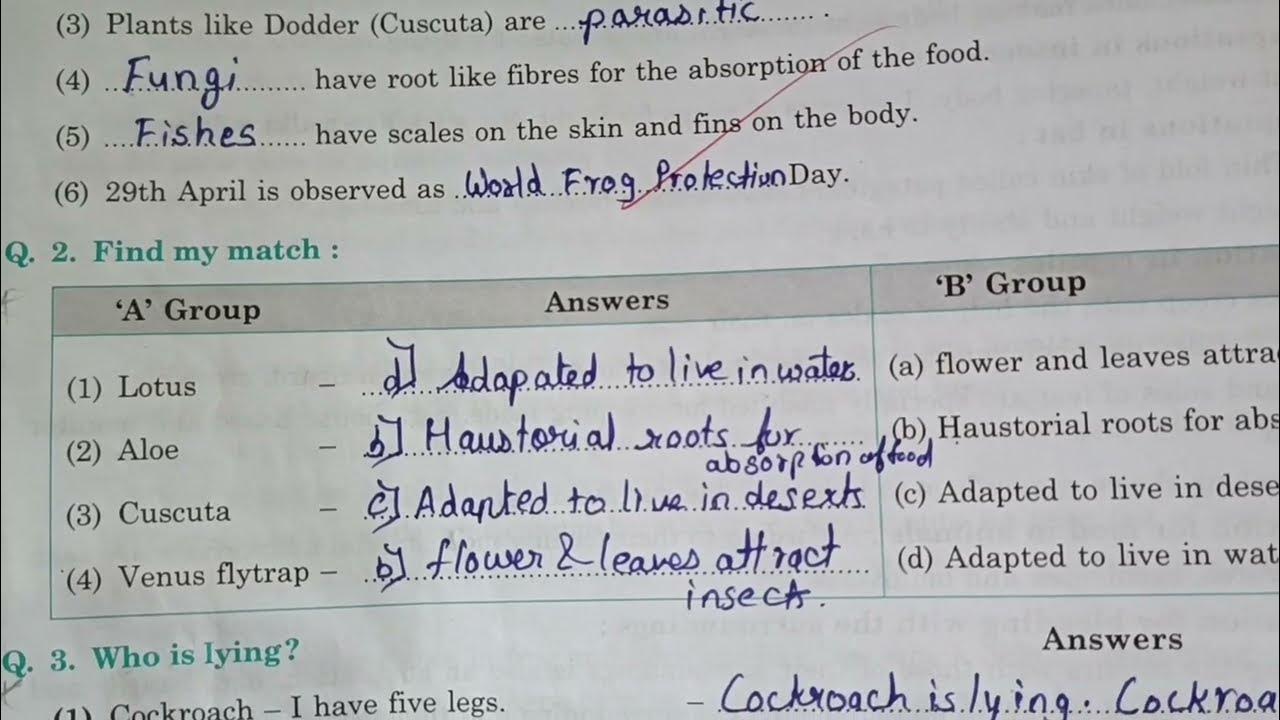 (3) Plants like Dodder (Cuscuta) are ...parasitic........ .
(4) ...Fungi......... have root like fibres for the absorption of the food.
(5) ....Fishes...... have scales on the skin and fins on the body.
(6) 29th April is observed as ..World Frog Protection Day.
Q. 2. Find my match :
‘A’ Group Answers ‘B’ Group
(1) Lotus – d] Adapated to live in water (a) flower and leaves attra
(2) Aloe – b] Haustorial roots for (b) Haustorial roots for abs
absorption of food
(3) Cuscuta – c] Adapted to live in deserts (c) Adapted to live in dese
(4) Venus flytrap – b] flower & leaves attract (d) Adapted to live in wat
insects.
Q. 3. Who is lying? Answers
(1) Cockroach – I have five legs. – Cockroach is lying. Cockroa